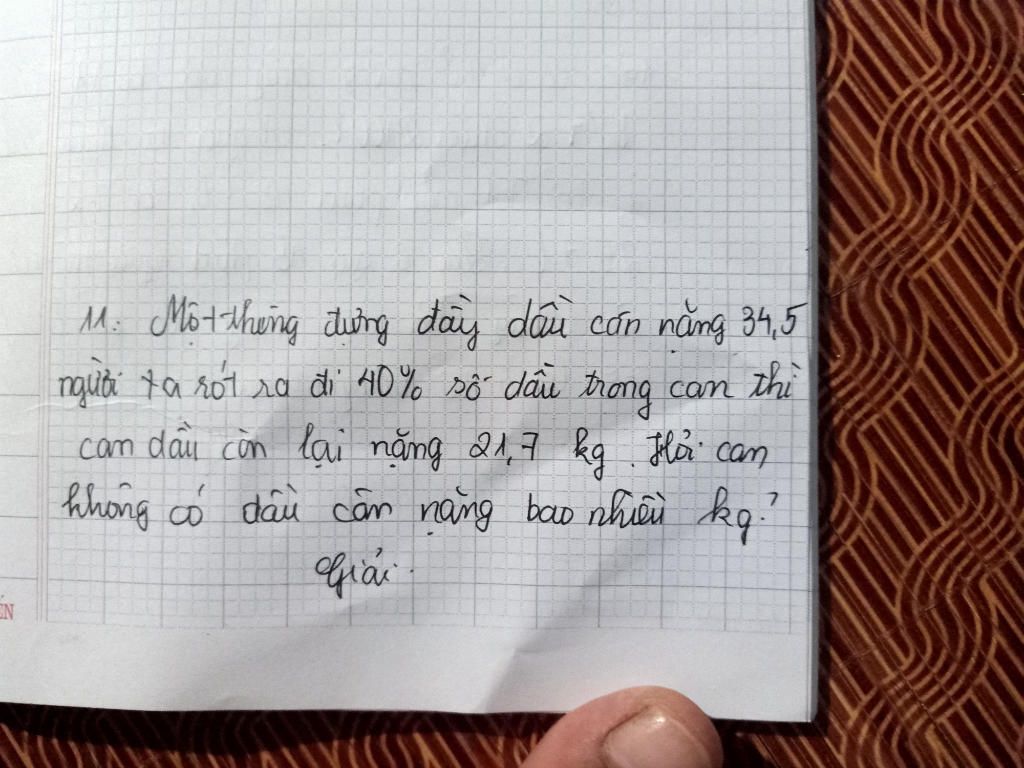 11. Một thùng đựng đầy dầu cân nặng 34,5
người ta rót ra đi 40% số dầu trong can thì
can dầu còn lại nặng 21,7 kg. Hỏi can
không có dầu cân nặng bao nhiêu kg?
Giải.
ẾN